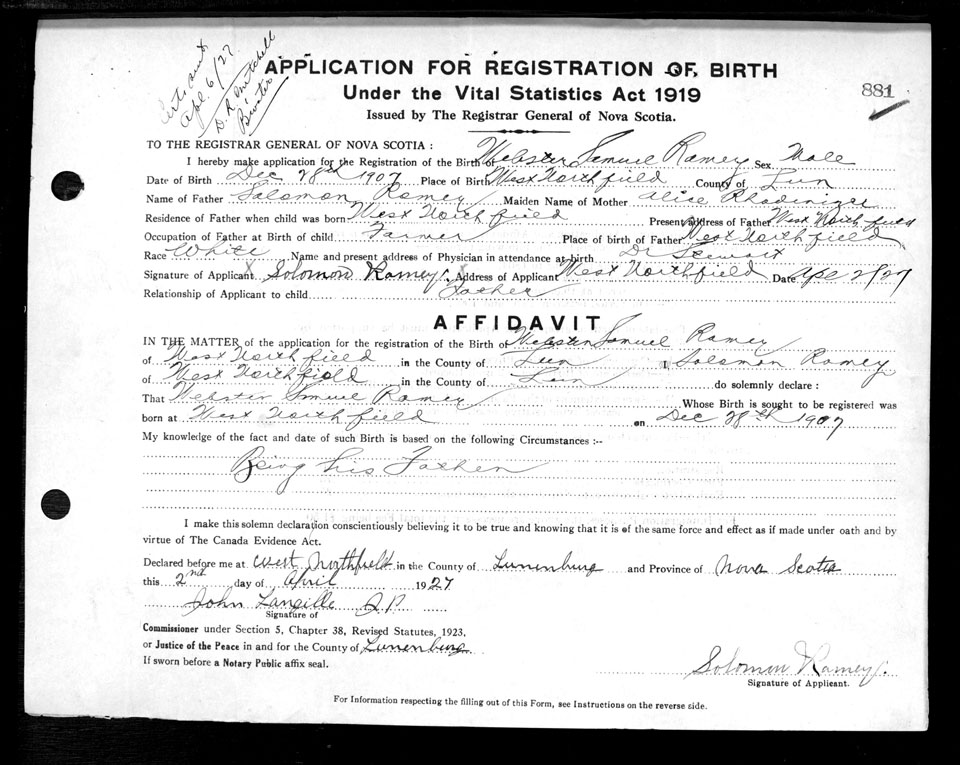 Cert. sent
Apl 6/27.
D. R. Mitchell
B'water
881
APPLICATION FOR REGISTRATION OF BIRTH
Under the Vital Statistics Act 1919
Issued by The Registrar General of Nova Scotia.
TO THE REGISTRAR GENERAL OF NOVA SCOTIA :
I hereby make application for the Registration of the Birth of Webster Semuel Ramey Sex Male
Date of Birth Dec 28th 1907 Place of Birth West Northfield County of Lun
Name of Father Salomon Ramey Maiden Name of Mother Alice Rhodenizer
Residence of Father when child was born West North field Present address of Father West North field
Occupation of Father at Birth of child Farmer Place of birth of Father West Northfield
Race White Name and present address of Physician in attendance at birth Dr Stewart
Signature of Applicant Solomon Ramey Address of Applicant West Northfield Date Apl 2/27
Relationship of Applicant to child Father
AFFIDAVIT
IN THE MATTER of the application for the registration of the Birth of Webster Samuel Ramey
of West North field in the County of Lun I, Salomon Ramey
of West North field in the County of Lun do solemnly declare :
That Webster Smuel Ramey Whose Birth is sought to be registered was
born at West North field on Dec 28th 1907
My knowledge of the fact and date of such Birth is based on the following Circumstances :--
Being his Father
I make this solemn declaration conscientiously believing it to be true and knowing that it is of the same force and effect as if made under oath and by
virtue of The Canada Evidence Act.
Declared before me at West Northfield in the County of Lunenburg and Province of Nova Scotia
this 2nd day of April 1927
John Langille J.P.
Signature of
Commissioner under Section 5, Chapter 38, Revised Statutes, 1923,
or Justice of the Peace in and for the County of Lunenburg
If sworn before a Notary Public affix seal.
Solomon Ramey.
Signature of Applicant.
For Information respecting the filling out of this Form, see Instructions on the reverse side.